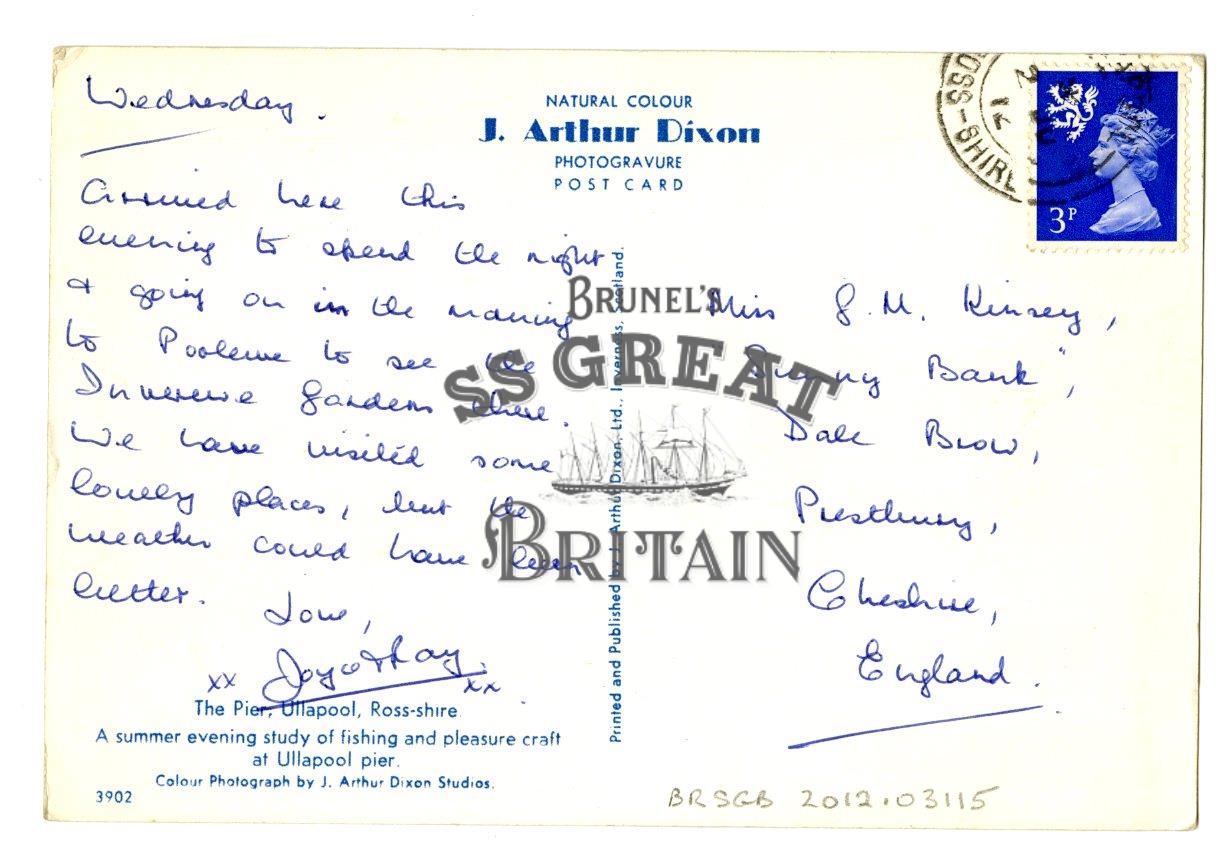 Wednesday.
NATURAL COLOUR
J. Arthur Dixon
PHOTOGRAVURE
POST CARD
SS-SHIRE
3P
Arrived here this
evening to spend the night
& going on in the morning
to Poolewe to see the
Inverewe Gardens there.
We have visited some
lovely places, but the
weather could have been
better.
Love,
Joyce & Ray.
xx xx
The Pier, Ullapool, Ross-shire.
A summer evening study of fishing and pleasure craft
at Ullapool pier.
Colour Photograph by J. Arthur Dixon Studios.
3902
Printed and Published by J. Arthur Dixon, Ltd., Inverness, Scotland.
BRUNEL'S
SS GREAT
BRITAIN
Miss G. M. Kinsey,
"Sunny Bank",
Dale Brow,
Prestbury,
Cheshire,
England.
BRSGB 2012.03115